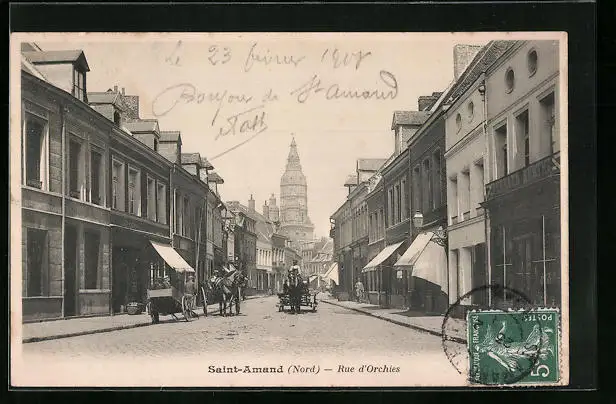 le 23 février 190
Bonjour de St Amand
Saint-Amand (Nord) — Rue d'Orchies
5